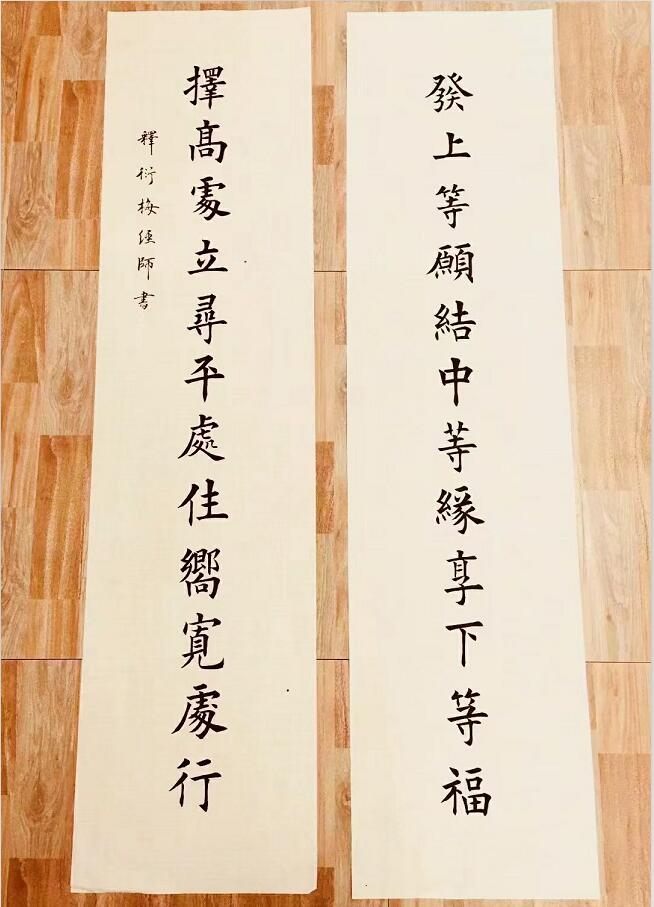 發上等願結中等緣享下等福
擇高處立尋平處住嚮寬處行
釋衍梅經師書